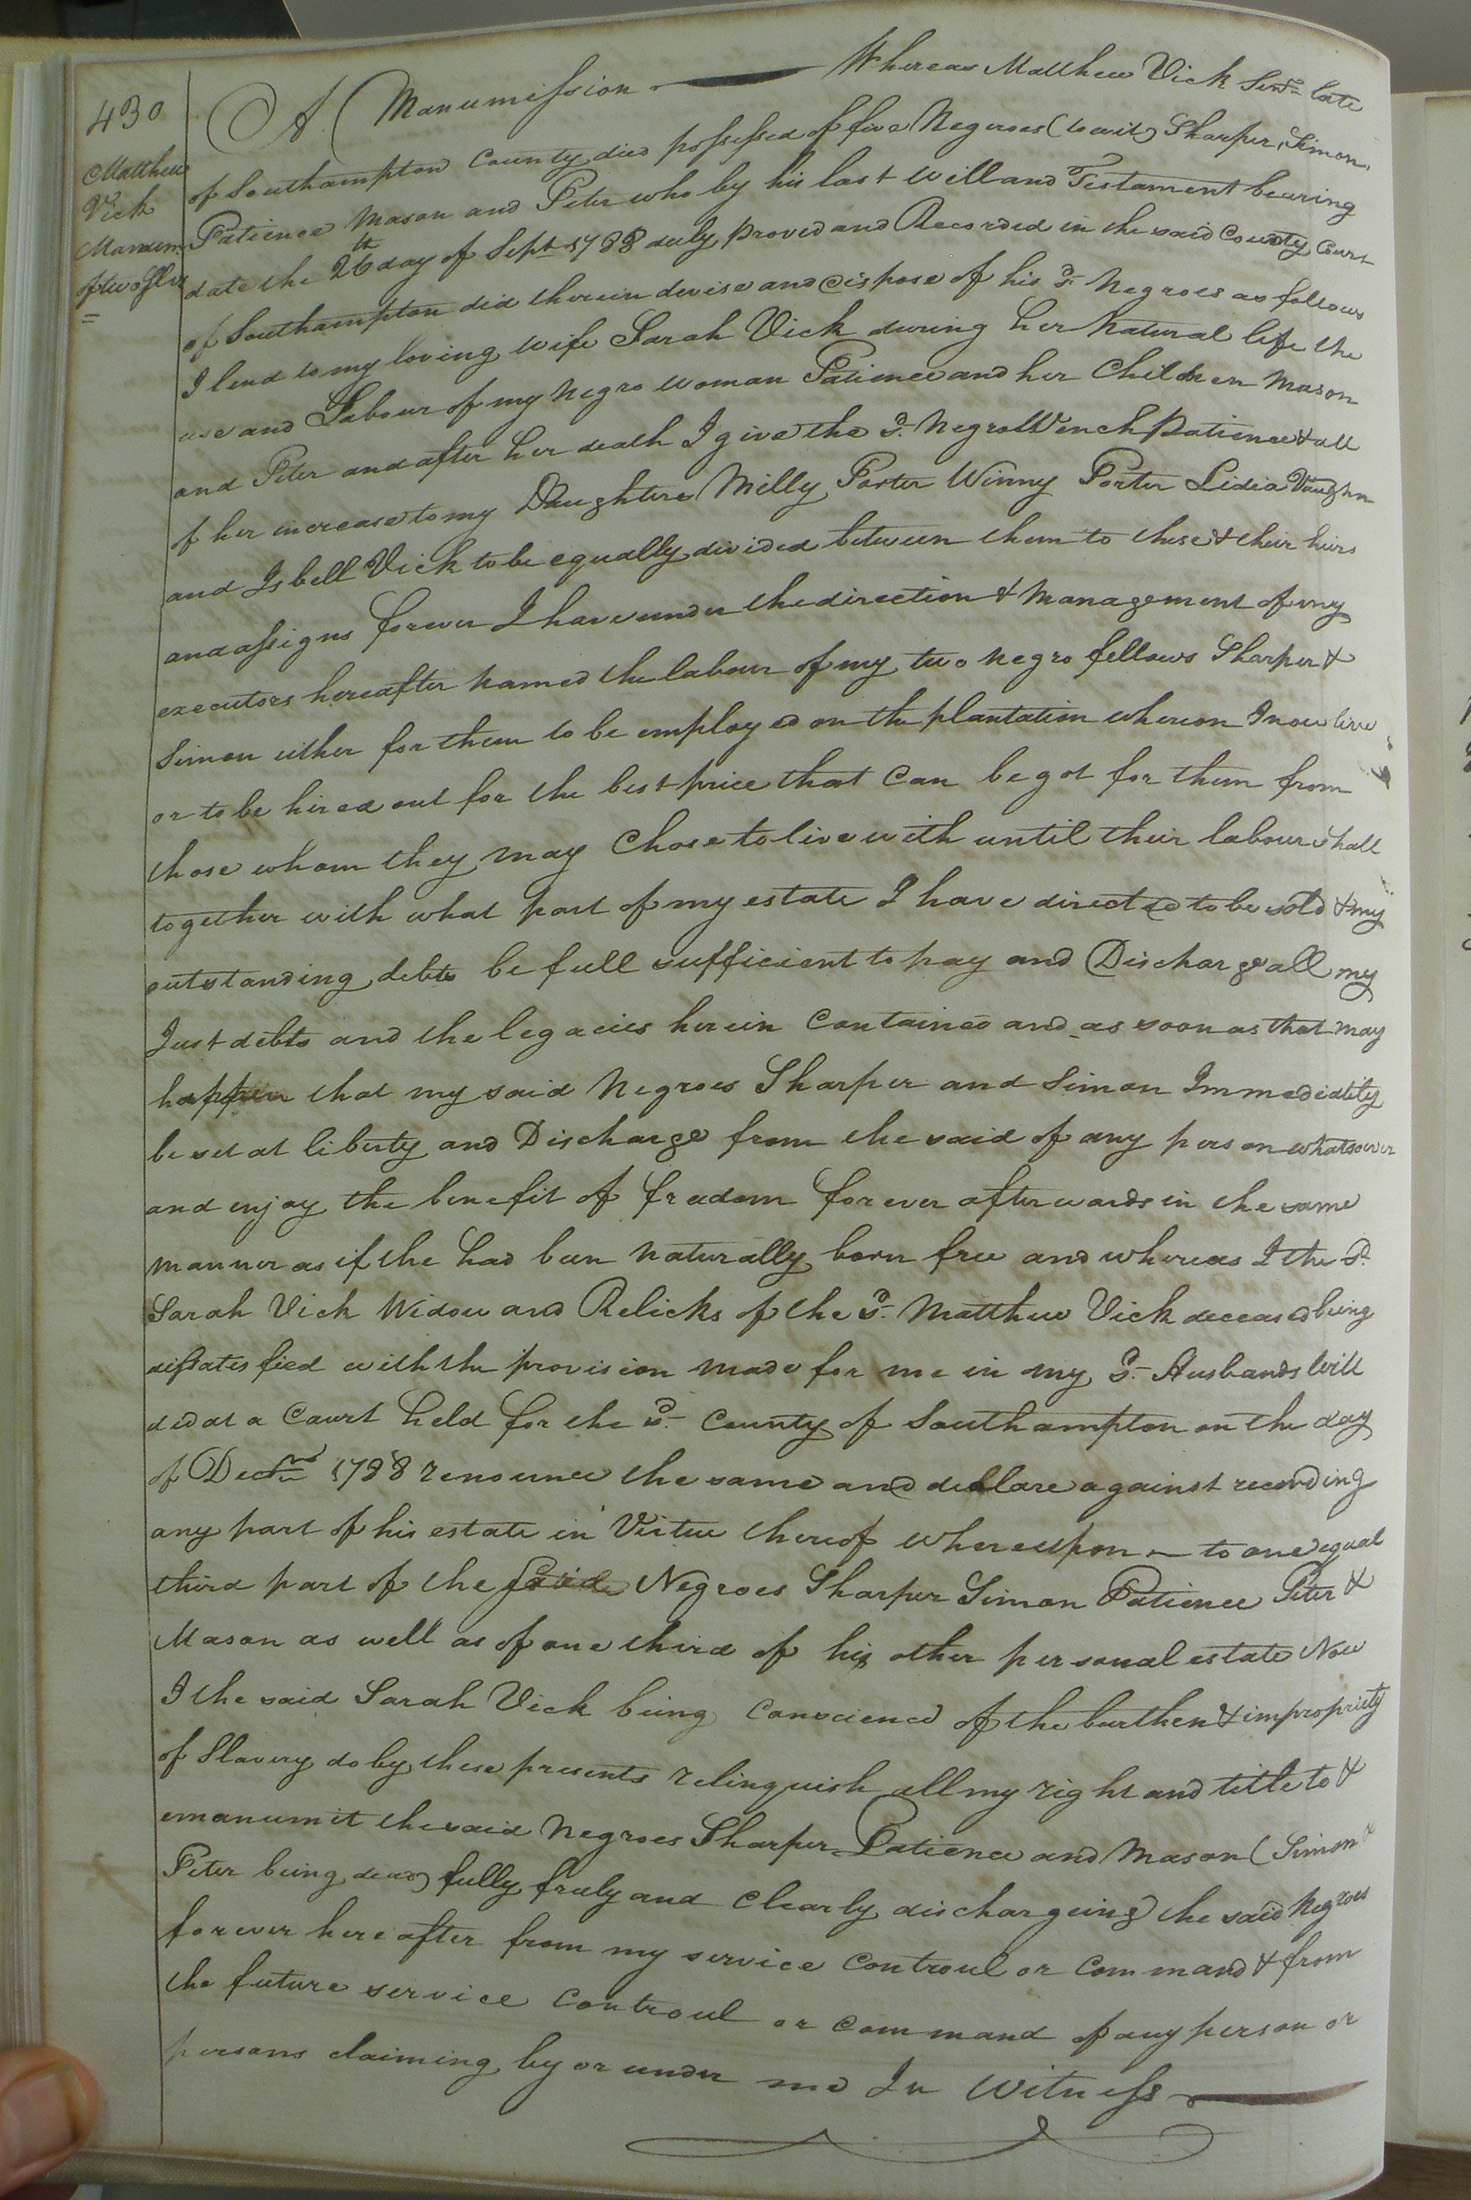 430
Matthew
Vick
Manum.
of two Slvs
A Manumission Whereas Matthew Vick Senr. late
of Southampton County died possessed of five Negroes (to wit) Sharper, Simon,
Patience Mason and Peter who by his last will and Testament bearing
date the 26th day of Sept. 1788 duly proved and Recorded in the said County Court
of Southampton did therein devise and dispose of his sd. Negroes as follows
I lend to my loving wife Sarah Vick during her natural life the
use and Labour of my Negro woman Patience and her Children Mason
and Peter and after her death I give the sd. Negro Wench Patience & all
of her increase to my Daughters Milly Porter Winny Porter Lidia Vaughn
and Isbell Vick to be equally divided between them to these & their heirs
and assigns forever I have under the direction & management of my
executors hereafter named the labour of my two negro fellows Sharper &
Simon either for them to be employed on the plantation whereon I now live
or to be hired out for the best price that can be got for them from
those whom they may chose to live with until their labour shall
together with what part of my estate I have directed to be sold & my
outstanding debts be full sufficient to pay and Discharge all my
Just debts and the legacies herein contained and as soon as that may
happen that my said Negroes Sharper and Simon Immediatily
be set at liberty and Discharge from the said of any person whatsoever
and enjoy the benefit of freedom forever afterwards in the same
manner as if the had been naturally born free and whereas I the sd.
Sarah Vick Widow and Relicks of the sd. Matthew Vick deceased being
disatesfied with the provision made for me in my sd. Husbands Will
did at a Court held for the sd. County of Southampton on the day
of 1788 renounce the same and declare against recording
any part of his estate in Virtue thereof whereupon to one equal
third part of the said Negroes Sharper Simon Patience Peter &
Mason as well as of one third of his other personal estate Now
I the said Sarah Vick being Conscienced of the burthen & impropriety
of Slavery do by these presents relinquish all my right and title to &
emanumit the said Negroes Sharper Patience and Mason (Simon &
Peter being dead) fully fruly and clearly dischargeing the said Negroes
forever hereafter from my service controul or command & from
the future service controul or command of any person or
persons claiming by or under me In Witness